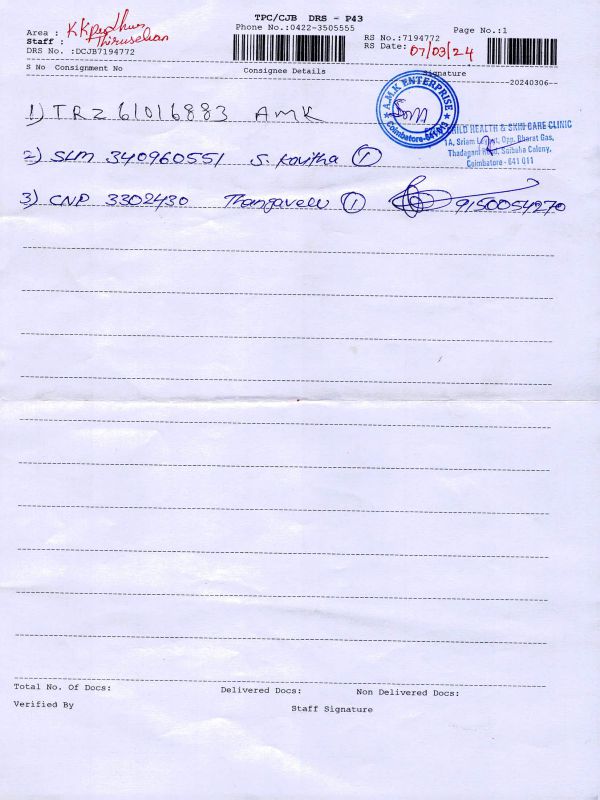 TPC/CJB DRS - P43
Phone No.:0422-3505555
Page No.:1
Area : KKPudhur
Staff : Thiruselvan
DRS No. :DCJB7194772
RS No.:7194772
RS Date: 07/03/24
S No Consignment No Consignee Details Signature
20240306
1) TRZ 61016883 AMK
A.M.K ENTERPRISE
Coimbatore-641 043
CHILD HEALTH & SKIN CARE CLINIC
1A, Sriam Layout, Opp. Bharat Gas,
Thadagam Road, Saibaba Colony,
Coimbatore - 641 011
2) SLM 340960551 S. Kavitha 1
3) CNP 3302430 Thangavelu 1 9150054270
Total No. Of Docs: Delivered Docs: Non Delivered Docs:
Verified By Staff Signature